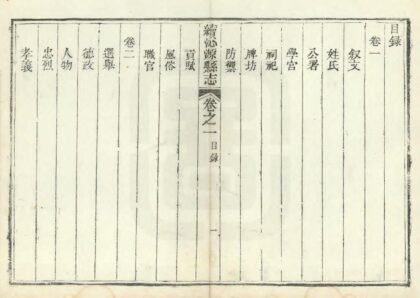 目錄
卷一
叙文
姓氏
公署
學宮
祠祀
牌坊
防禦
續沁源縣志 卷之一 目錄 一
貢賦
風俗
職官
卷二
選舉
德政
人物
忠烈
孝義